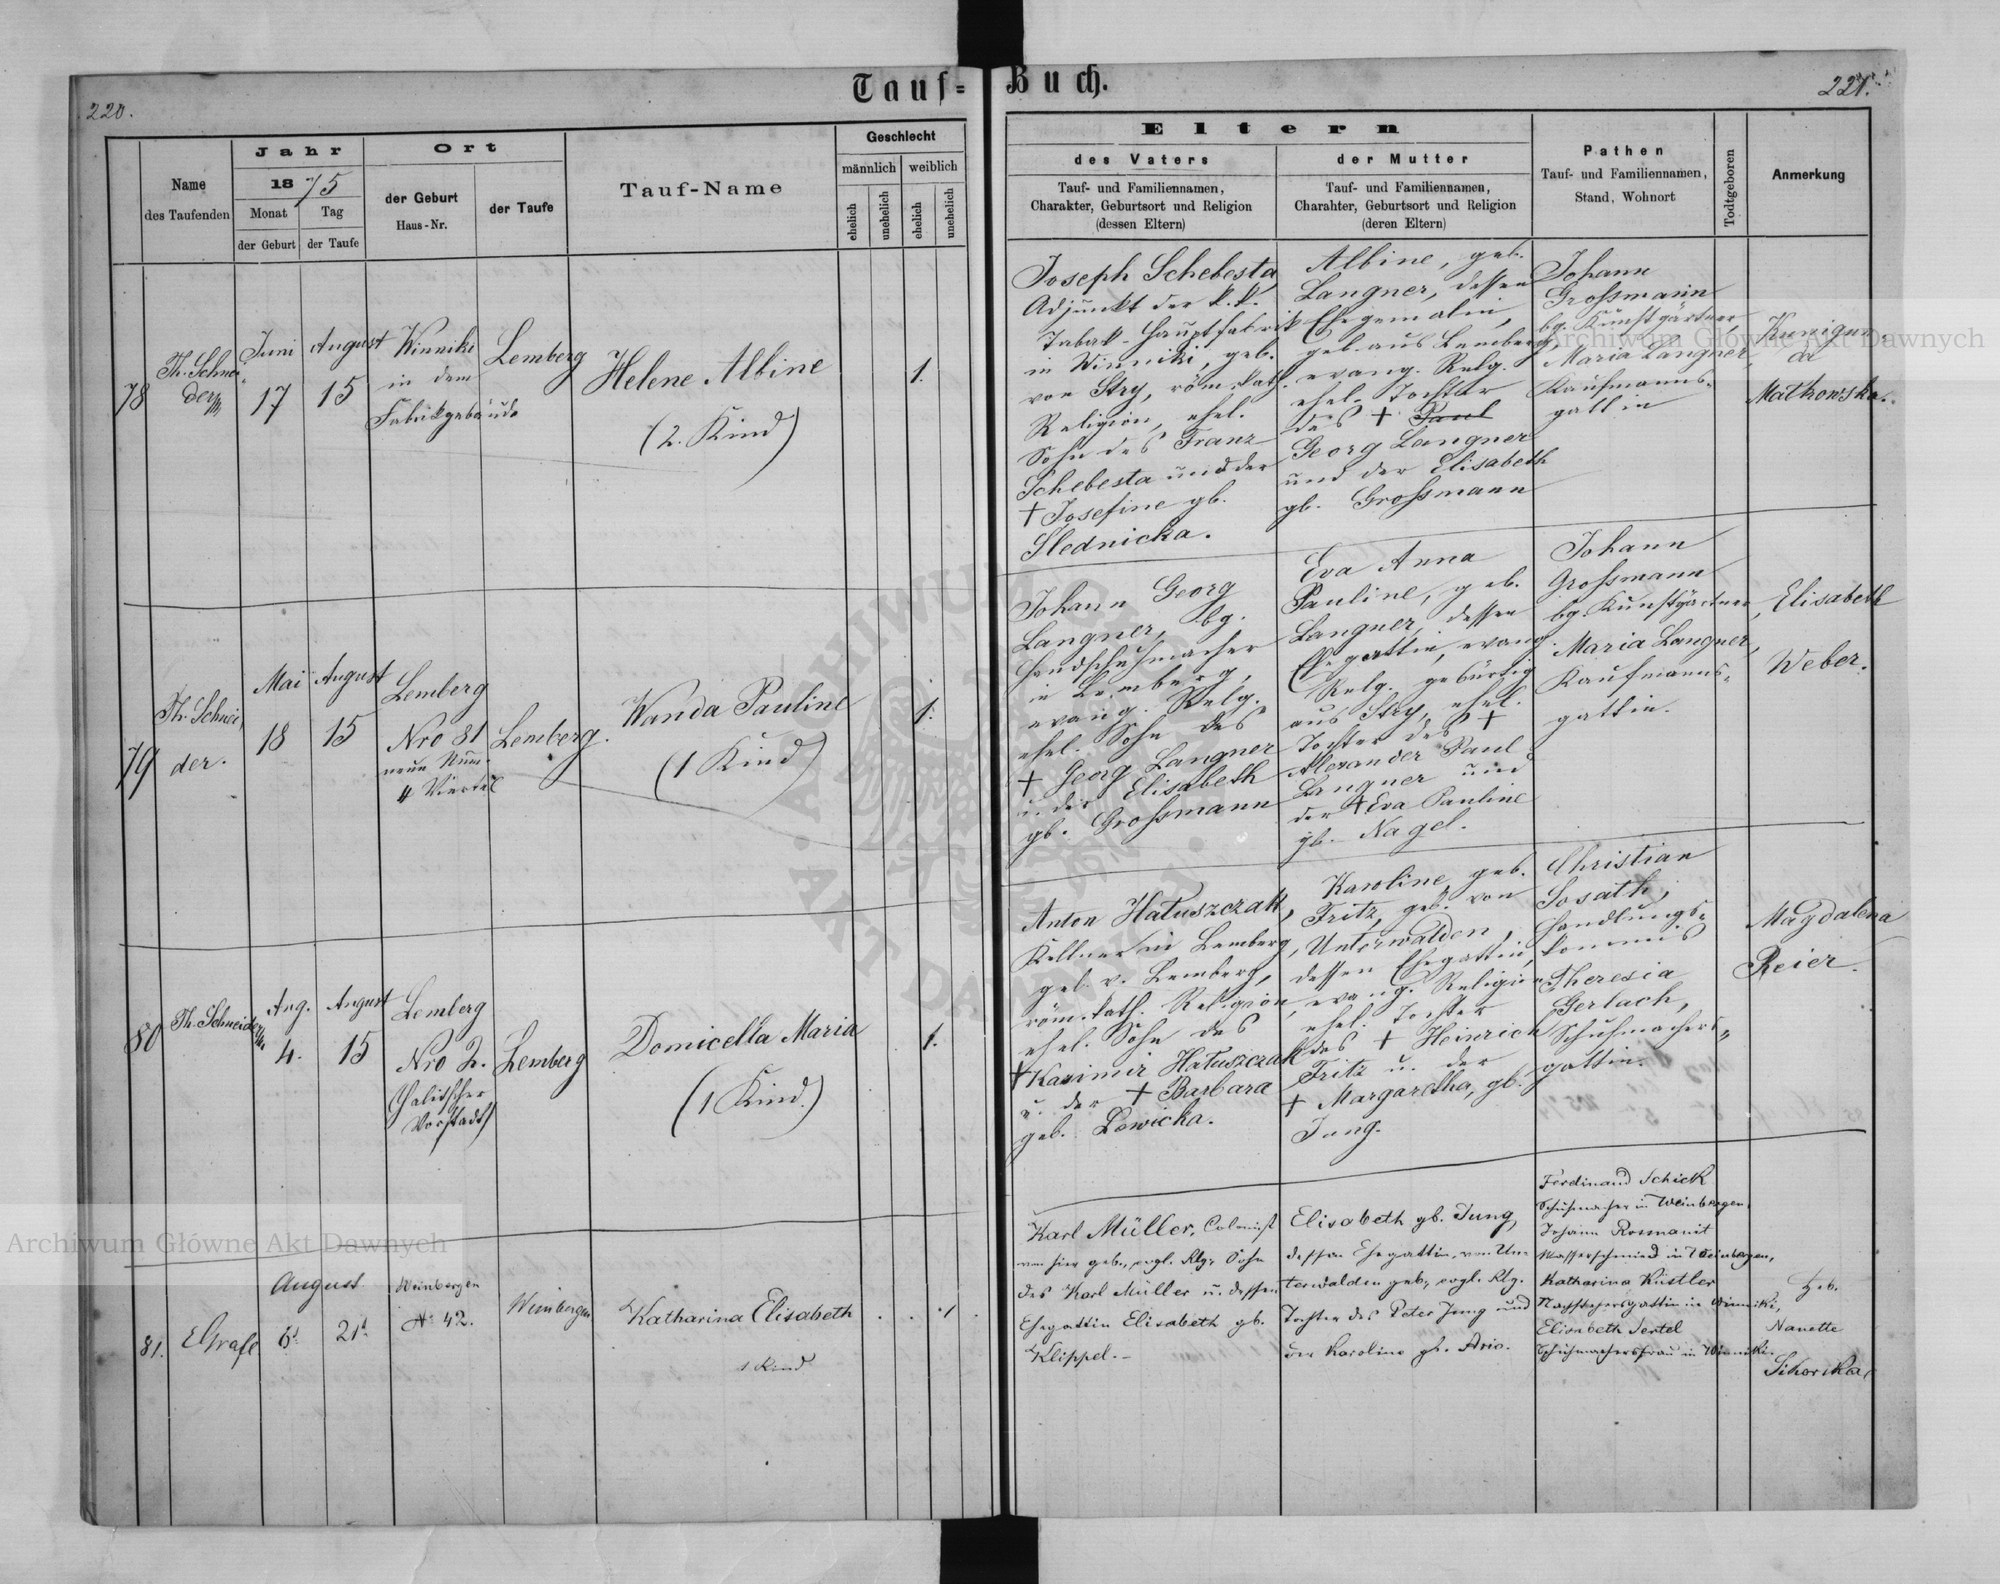 Tauf-Buch.
220.
221.
Name
des Taufenden
Jahr
1875
Monat
Tag
der Geburt
der Taufe
Ort
der Geburt
Haus-Nr.
der Taufe
Tauf-Name
Geschlecht
männlich
weiblich
ehelich
unehelich
ehelich
unehelich
Eltern
des Vaters
Tauf- und Familiennamen,
Charakter, Geburtsort und Religion
(dessen Eltern)
der Mutter
Tauf- und Familiennamen,
Charahter, Geburtsort und Religion
(deren Eltern)
Pathen
Tauf- und Familiennamen,
Stand, Wohnort
Todtgeboren
Anmerkung
78
Th. Schnei-
der
Juni
17
August
15
Winniki
in dem
Fabrikgebäude
Lemberg
Helene Albine
(2. Kind)
1.
Joseph Schebesta,
Adjunkt der k. k.
Tabak-Hauptfabrik
in Winniki, geb.
von Stry, röm. kath.
Religion, ehel.
Sohn des Franz
Schebesta und der
† Josefine gb.
Slednicka.
Albine, geb.
Langner, dessen
Ehegemalin,
geb. aus Lemberg,
evang. Relg.
ehel. Tochter
des † Paul
Georg Langner
und der Elisabeth
gb. Großmann
Johann
Großmann
bg. Kunstgärtner,
Maria Langner,
Kaufmanns-
gattin
Kunigun
da
Mathowska.
79
Th. Schnei,
der.
Mai
18
August
15
Lemberg
Nro 81
neue Num.
4 Viertel
Lemberg.
Wanda Pauline
(1 Kind)
1.
Johann Georg
Langner, bg.
Handschuhmacher
in Lemberg,
evang. Relg.
ehel. Sohn des
† Georg Langner
u. der Elisabeth
gb. Großmann
Eva Anna
Pauline, geb.
Langner, dessen
Ehegattin, evang.
Relg. gebürtig
aus Stry, ehel.
Tochter des †
Alexander Paul
Langner und
der † Eva Pauline
gb. Nagel.
Johann
Großmann
bg. Kunstgärtner,
Maria Langner,
Kaufmanns-
gattin.
Elisabeth
Weber.
80
Th. Schneider
Aug.
4.
August
15
Lemberg
Nro 2.
(Halitscher
Vorstadt)
Lemberg
Domicella Maria
(1 Kind.)
1.
Anton Hatuszczak,
Kellner in Lemberg,
geb. v. Lemberg,
röm. kath. Religion,
ehel. Sohn des
† Kasimir Hatuszczak
u. der † Barbara
geb. Lewicka.
Karoline, geb.
Fritz, geb. von
Unterwalden,
dessen Ehegattin,
evang. Religion,
ehel. Tochter
des † Heinrich
Fritz u. der
† Margaretha, gb.
Jung.
Christian
Sosath,
Handlungs-
kommis
Theresia
Gerlach,
Schuhmachers-
gattin.
Magdalena
Reier.
81.
EGrafl
August
21t
Weinbergen
No 42.
Weinbergen
Katharina Elisabeth
1 Kind
1
Karl Müller, Colonist
von hier geb., evgl. Rlg. Sohn
des Karl Müller u. dessen
Ehegattin Elisabeth gb.
Klippel.-
Elisabeth gb. Jung,
dessen Ehegattin, von Un-
terwalden geb., evgl. Rlg.
Tochter des Peter Jung und
der Karoline gb.
Ferdinand Schick
Schuhmacher in Weinbergen,
Johann Rosmanit
in Weinbergen,
Katharina Küstler
in Winniki,
Elisabeth Sertel
Schuhmachersfrau in Winniki.
Heb.
Nanette
Sikorska
Archiwum Główne Akt Dawnych
Archiwum Główne Akt Dawnych